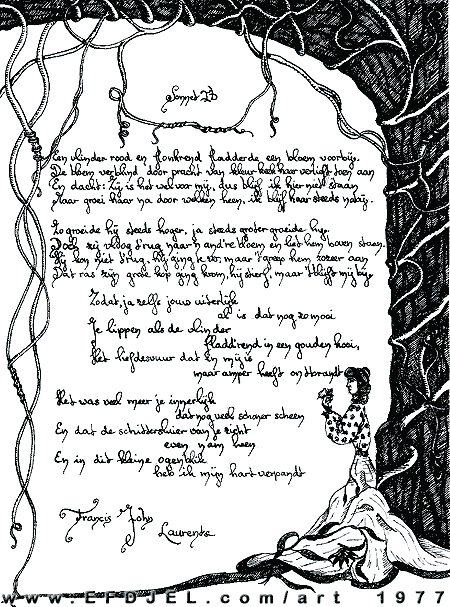 Sonnet 23
Een vlinder rood en flonkrend fladderde een bloem voorbij.
De bloem verblind door pracht van kleur keek haar verliefd toen aan
En dacht: Zij is het wel voor mij, dus blijf ik hier niet staan
Maar groei haar na door wolken heen, ik blijf haar steeds nabij.
Zo groeide hij steeds hoger, ja steeds groter groeide hij.
Doch zij vloog t'rug naar h'andre bloem en liet hem boven staan.
Hij kon niet t'rug, hij ging te ver, maar 't greep hem zozeer aan
Dat ras zijn grote kop ging krom, hij stierf, maar 't blijft mij bij
Zodat, ja zelfs jouw uiterlijk
al is dat nog zo mooi
Je lippen als de vlinder
fladdrend in een gouden kooi,
Het liefdesvuur dat in mij is
maar amper heeft ontbrandt
Het was veel meer je innerlijk
dat nog veel schoner scheen
En dat de schittersluier van je zicht
even nam heen
En in dit kleine ogenblik
heb ik mijn hart verpandt
Francis John
Laurentz
www.EFDJEL.com/art 1977